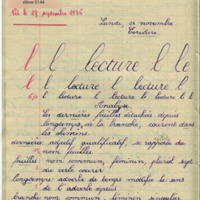 élève 5144
Lundi, 10 novembre
Écriture
l l lecture l le
l l lecture l lecture l l
l lecture l l lecture l l
Analyse
Les dernières feuilles détachées depuis
longtemps, de la branche, courent dans
les chemins.
dernières : adjectif qualificatif, se rapporte au
nom
feuilles : nom commun, féminin, pluriel sujet
du verbe courir
longtemps : adverbe de temps modifie le sens
de l'adverbe depuis
branche : nom commun, féminin, singulier